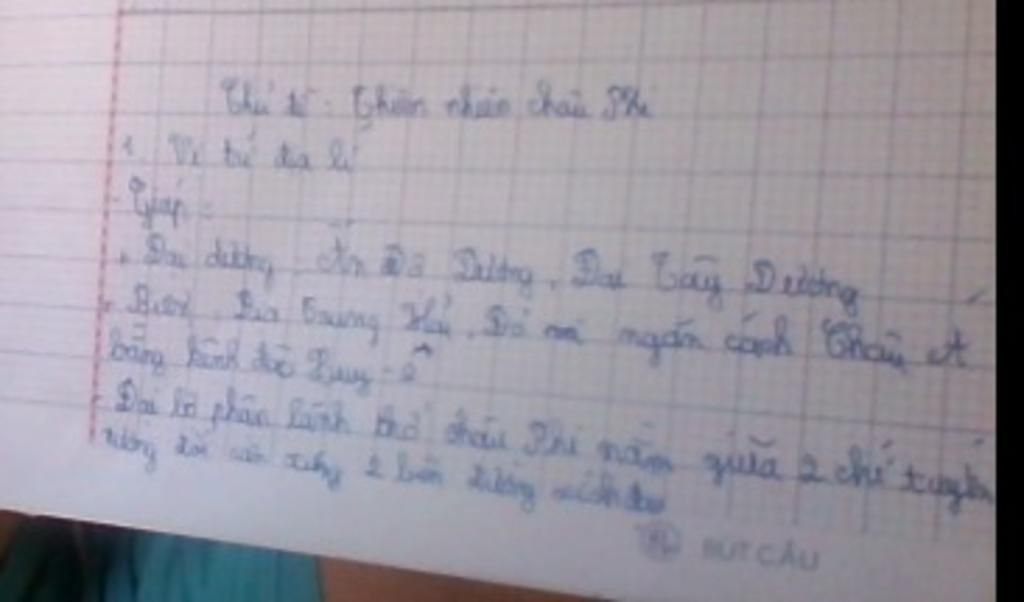 Thứ tư: Thiên nhiên châu Phi
1. Vị trí địa lí
- Giáp:
+ Đại dương: Ấn Độ Dương, Đại Tây Dương
+ Biển: Địa Trung Hải, Đỏ mà ngăn cách Châu Á
bằng kênh đào Xuy-ê
- Đại bộ phận lãnh thổ châu Phi nằm giữa 2 chí tuyến
tương đối cân xứng 2 bên đường xích đạo
BÚT CÂU